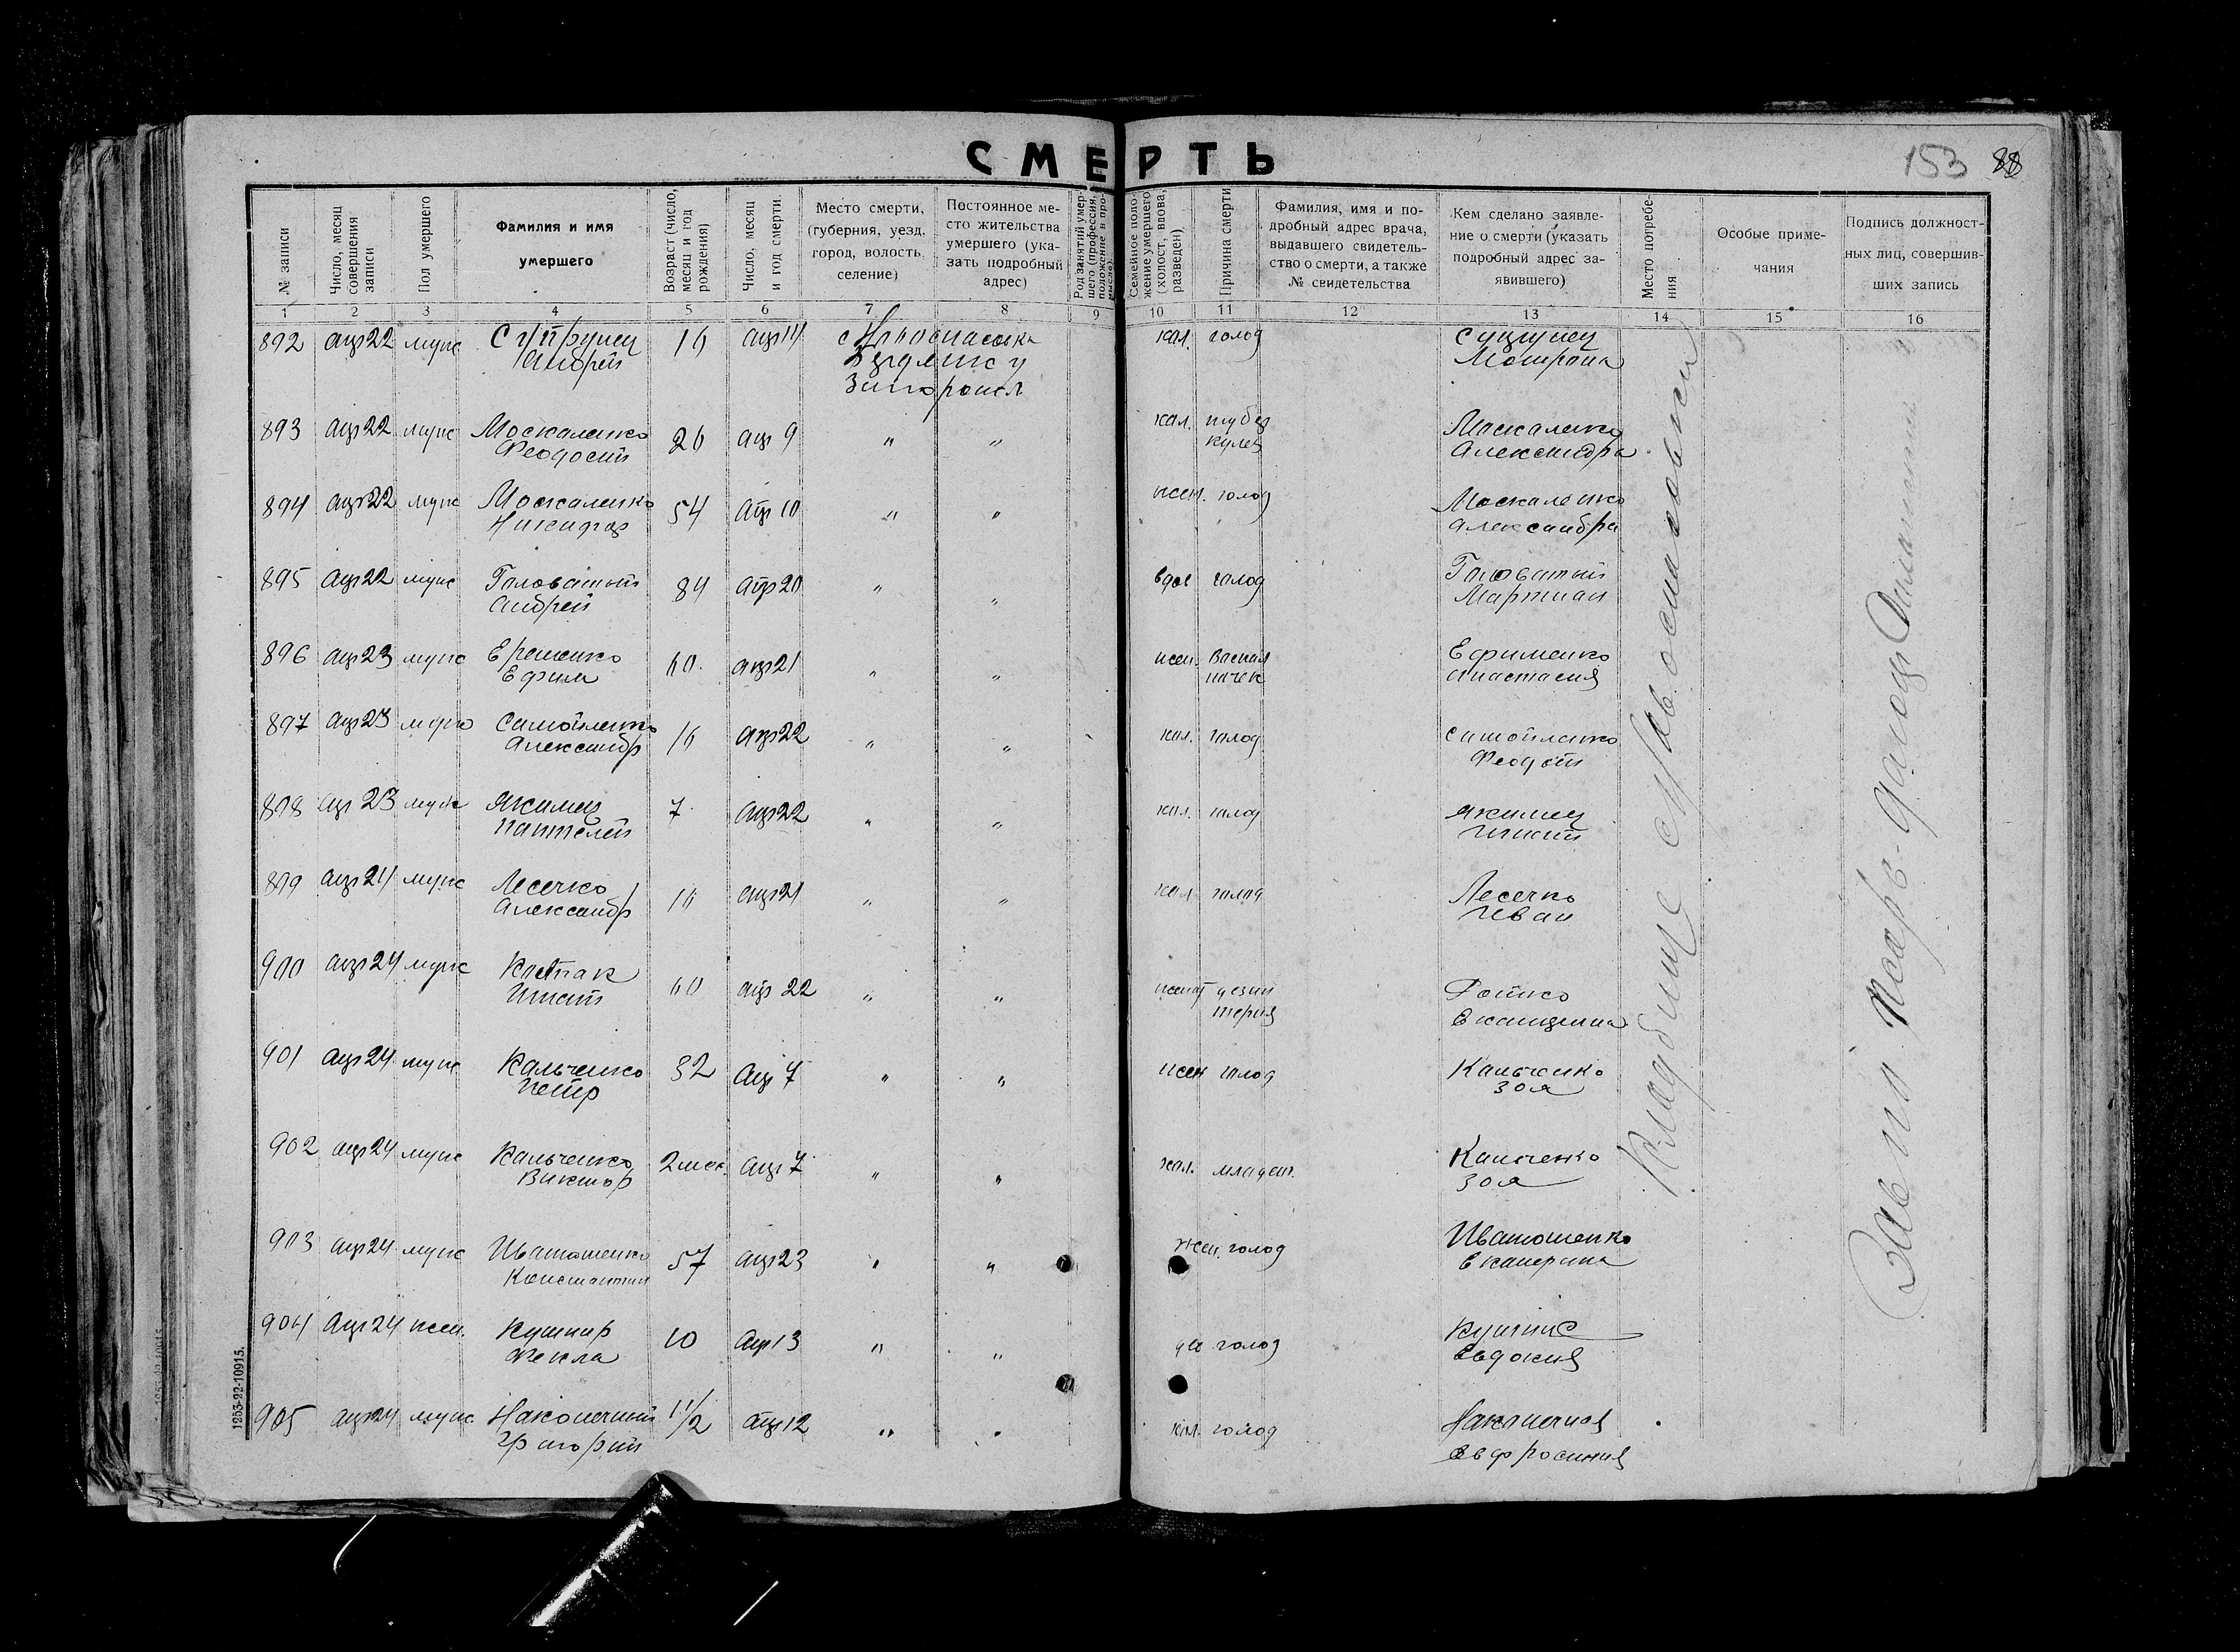 СМЕРТЬ
153 88
№ записи
Число, месяц совершения записи
Пол умершего
Фамилия и имя умершего
Возраст (число, месяц и год рождения)
Число, месяц и год смерти.
Место смерти, (губерния, уезд, город, волость, селение)
Постоянное место жительства умершего (указать подробный адрес)
Род занятий умершего (профессия, положение в промысле).
Семейное положение умершего (холост, вдова, разведен)
Причина смерти
Фамилия, имя и подробный адрес врача, выдавшего свидетельство о смерти, а также № свидетельства
Кем сделано заявление о смерти (указать подробный адрес заявившего)
Место погребения
Особые примечания
Подпись должностных лиц, совершивших запись
1 2 3 4 5 6 7 8 9 10 11 12 13 14 15 16
892 апр 22 муж Андрей 16 апр 14 хол. голод
893 апр 22 муж Москаленко Феодосий 26 апр 9 " " хол. туберкулез Москаленко Александра
894 апр 22 муж Москаленко Никифор 54 апр 10 " " жен. голод Москаленко Александра
895 апр 22 муж Головатый Андрей 84 апр 20 " " вдов голод Головатый Мартиан
896 апр 23 муж Ефименко Ефим 60 апр 21 " " жен. Воспал почек Ефименко Анастасия
897 апр 23 муж Самойленко Александр 16 апр 22 " " хол. голод Самойленко Феодот
898 апр 23 муж Якимец Пантелей 7 апр 22 " " хол. голод Якимец Игнат
899 апр 24 муж Лесечко Александр 16 апр 21 " " хол голод Лесечко Иван
900 апр 24 муж Игнат 60 апр 22 " " женат дезинтерия Екатерина
901 апр 24 муж Кальченко Петр 32 апр 7 " " жен голод Кальченко Зоя
902 апр 24 муж Кальченко Виктор 2 мес. апр 7 " " хол. младен. Кальченко Зоя
903 апр 24 муж Иватошенко Константин 57 апр 23 " " жен. голод Иватошенко Екатерина
904 апр 24 жен. Кушнир Фекла 10 апр 13 " " де голод Кушнир Евдокия
905 апр 24 муж Наконечный Григорий 1 1/2 апр 12 " " хол. голод Наконечная Евфросиния
Кладбище с Новоспасовки
1253-22-10915.